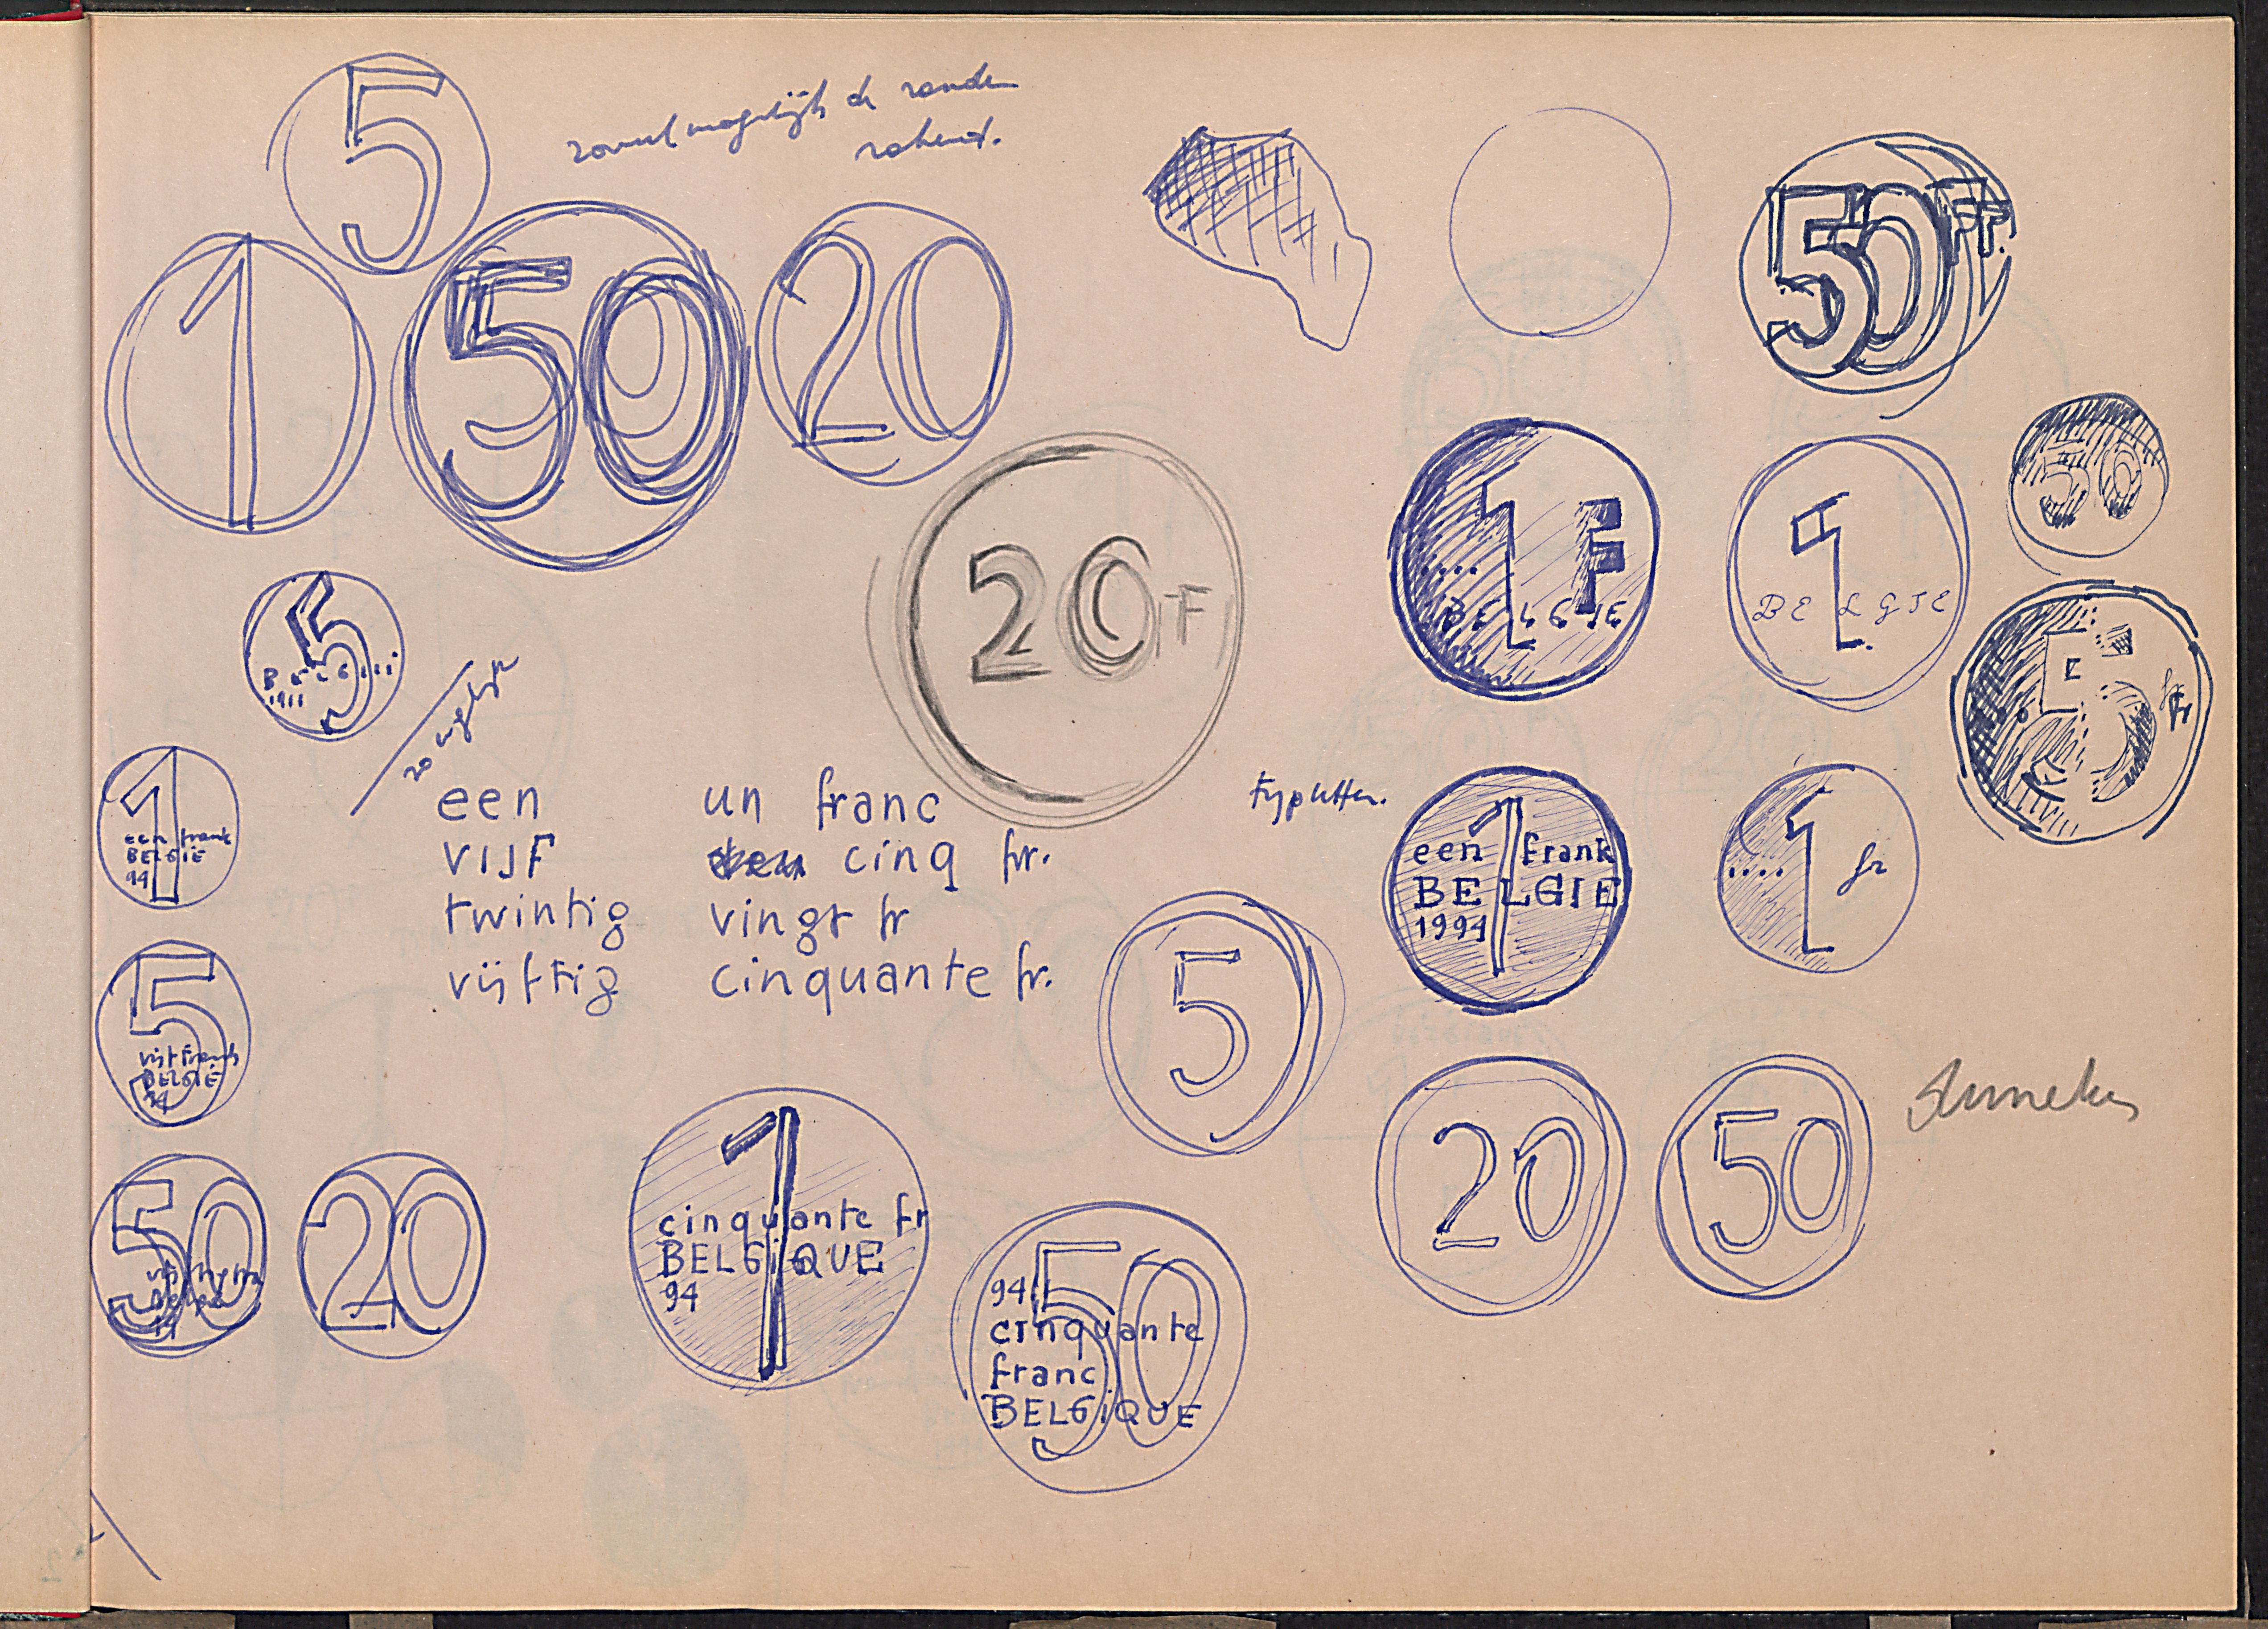 5
zoveel mogelijk de randen
rakend.
1
50
20
50 Fr.
20 F
1 F
BELGIE
1
BELGIE
50
5
BELGIII
1911
5
fr
Fr
1
een frank
BELGIË
94
een
VIJF
twintig
vijftig
un franc
cinq fr.
vingt fr
cinquante fr.
typ letter.
1
een frank
BELGIE
1994
1
fr
5
vijf frank
BELGIË
94
5
50
20
1
cinquante fr
BELGiQUE
94
50
94
cinquante
franc
BELGiQUE
20
50